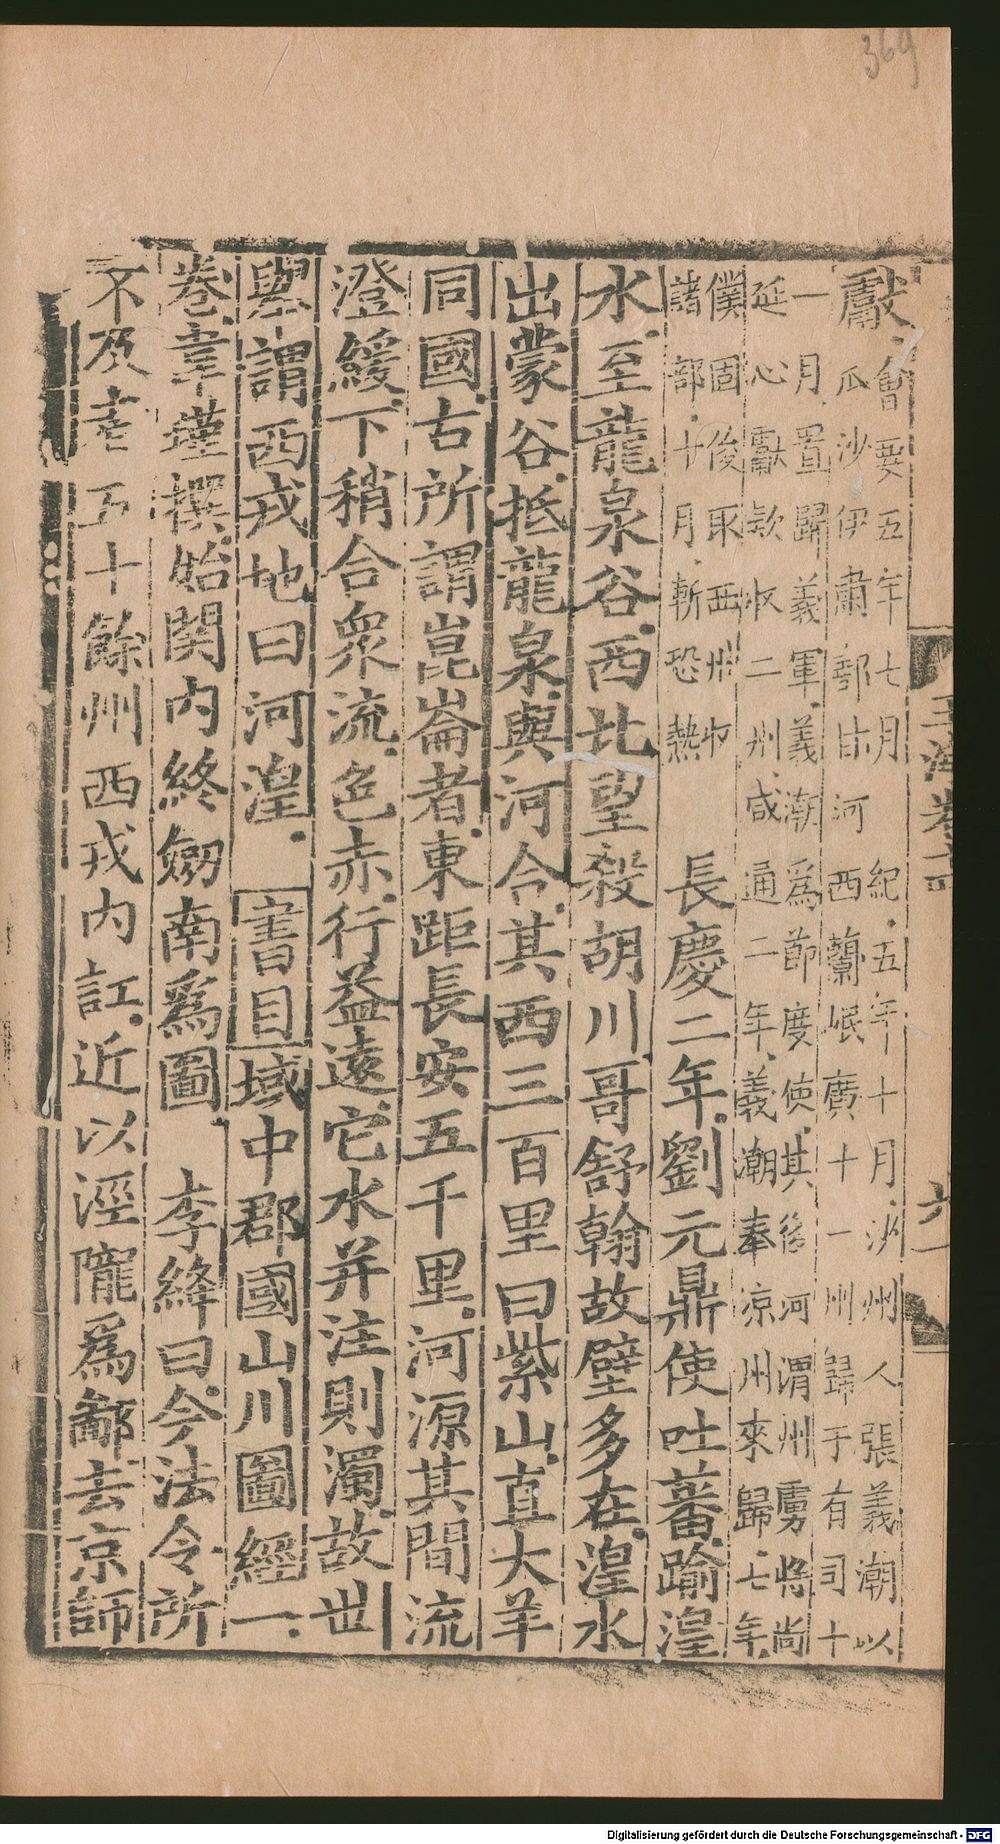 獻會要五年七月紀五年十月沙州人張義潮以
瓜沙伊肅鄯甘河西蘭岷廓十一州歸于有司十
一月置歸義軍義潮爲節度使其後河渭州虜將尚
延心獻款收二州咸通二年義潮奉凉州來歸七年
僕固俊取西州收
諸部十月斬恐熱
長慶二年劉元鼎使吐蕃踰湟
水至龍泉谷西北望殺胡川哥舒翰故壁多在湟水
出蒙谷抵龍泉與河合其西三百里曰紫山直大羊
同國古所謂崑崙者東距長安五千里河源其間流
澄緩下稍合衆流色赤行益遠它水并注則濁故世
舉謂西戎地曰河湟 書目域中郡國山川圖經一
卷韋瑾撰始関内終劒南爲圖 李絳曰今法令所
不及者五十餘州西戎内訌近以涇隴爲鄙去京師
玉海卷十四
六一
369
Digitalisierung gefördert durch die Deutsche Forschungsgemeinschaft - DFG